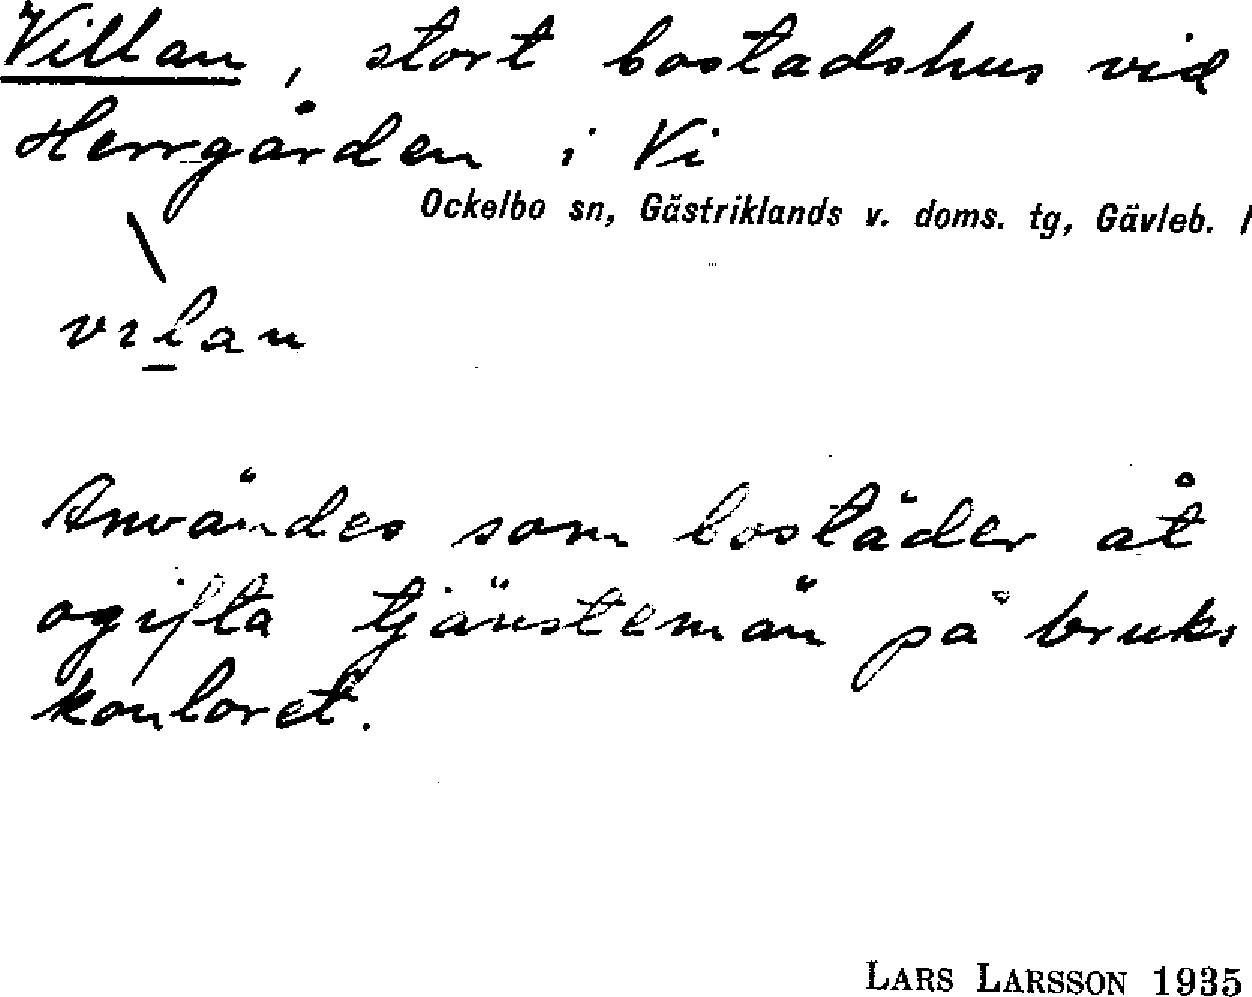 Villan, stort bostadshus vid
Herrgården i Vi
Ockelbo sn, Gästriklands v. doms. tg, Gävleb. l
\
vılan
Användes som bostäder åt
ogifta tjänstemän på bruks
kontoret.
LARS LARSSON 1935